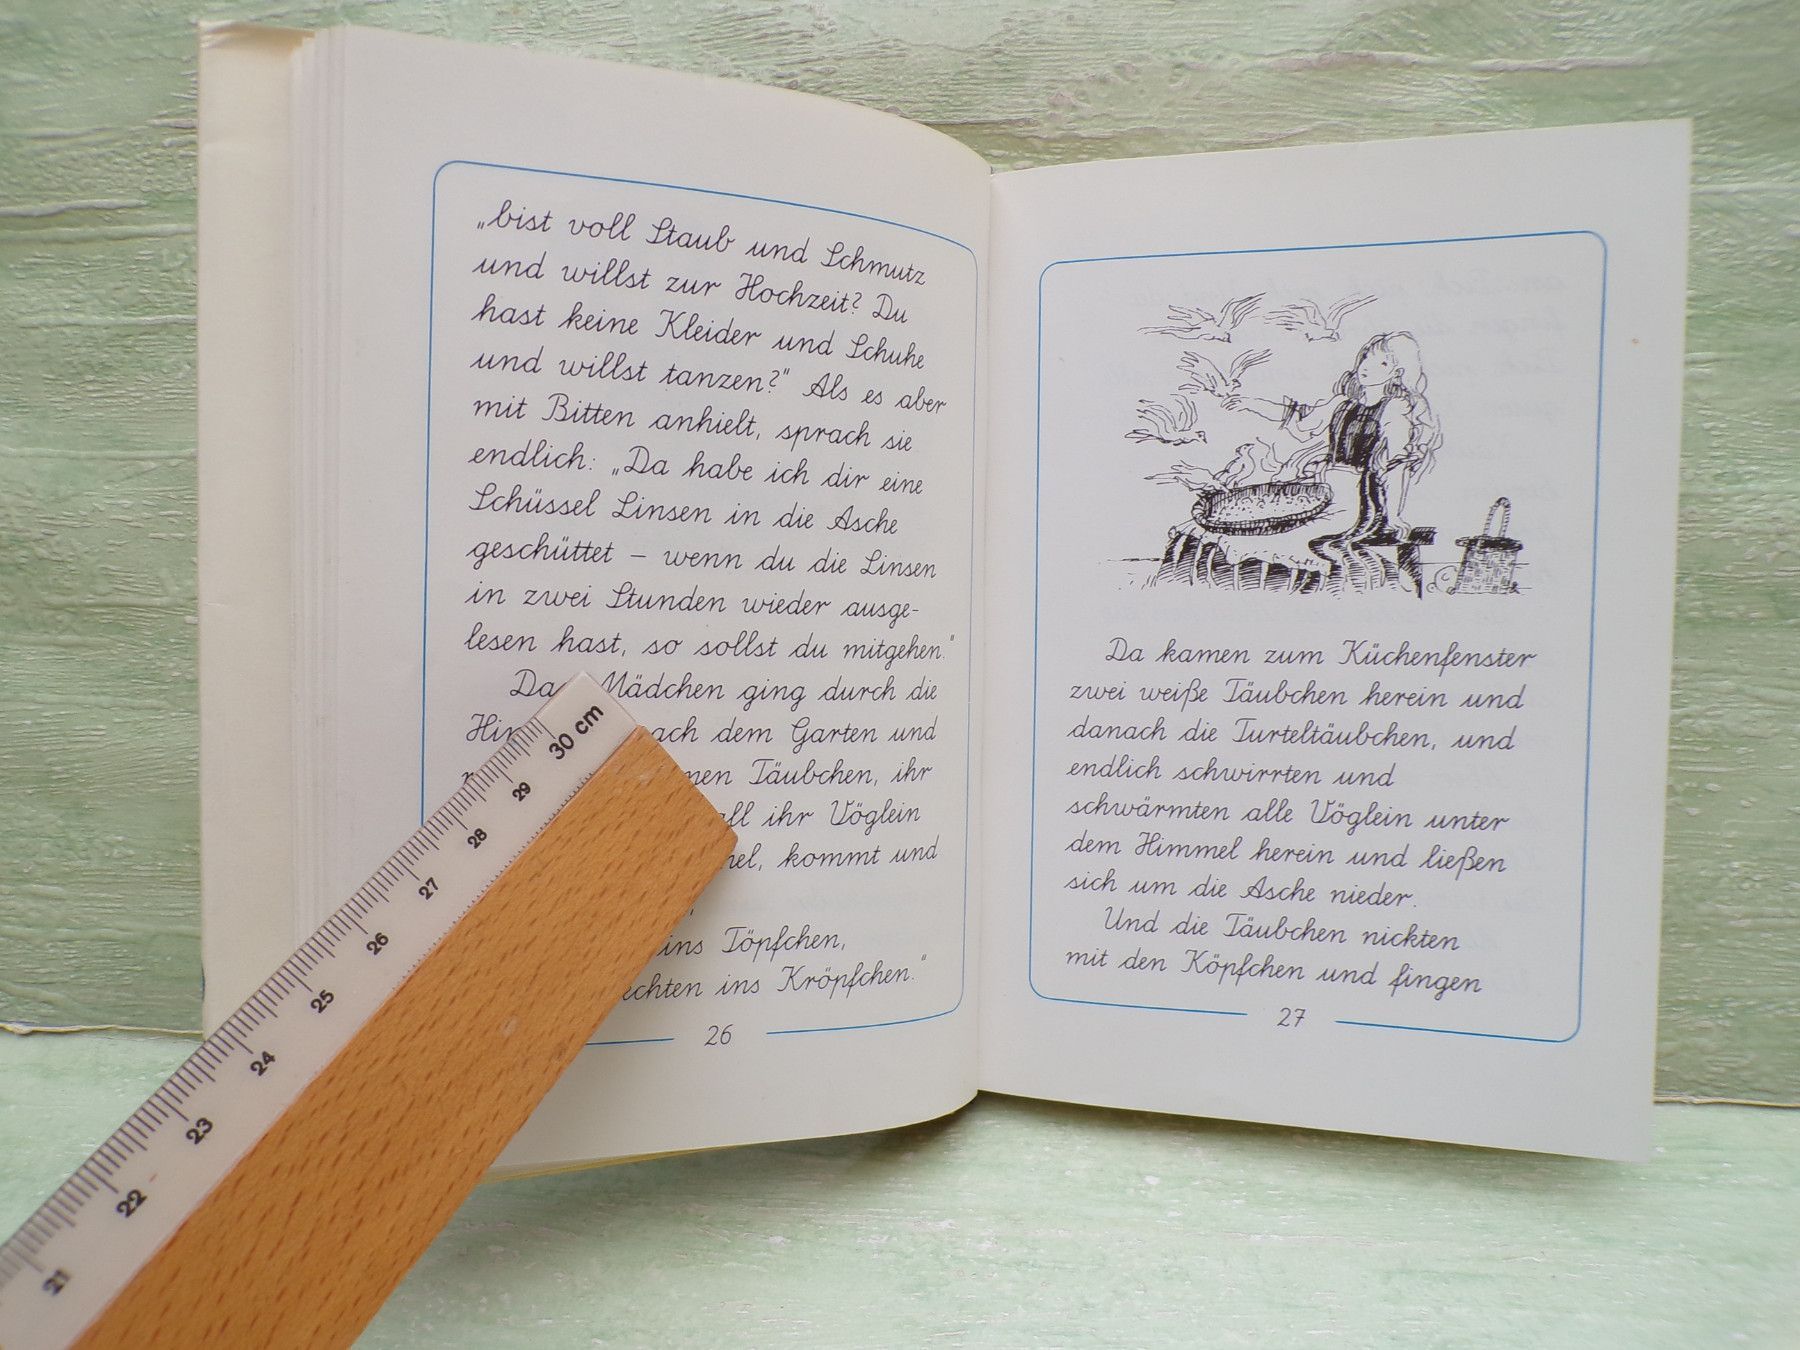 „bist voll Staub und Schmutz
und willst zur Hochzeit? Du
hast keine Kleider und Schuhe
und willst tanzen?" Als es aber
mit Bitten anhielt, sprach sie
endlich: „Da habe ich dir eine
Schüssel Linsen in die Asche
geschüttet – wenn du die Linsen
in zwei Stunden wieder ausge-
lesen hast, so sollst du mitgehen."
Mädchen ging durch die
dem Garten und
Täubchen, ihr
all ihr Vöglein
kommt und
ins Töpfchen,
ins Kröpfchen."
26
Da kamen zum Küchenfenster
zwei weiße Täubchen herein und
danach die Turteltäubchen, und
endlich schwirrten und
schwärmten alle Vöglein unter
dem Himmel herein und ließen
sich um die Asche nieder.
Und die Täubchen nickten
mit den Köpfchen und fingen
27
21 22 23 24 25 26 27 28 29 30 cm